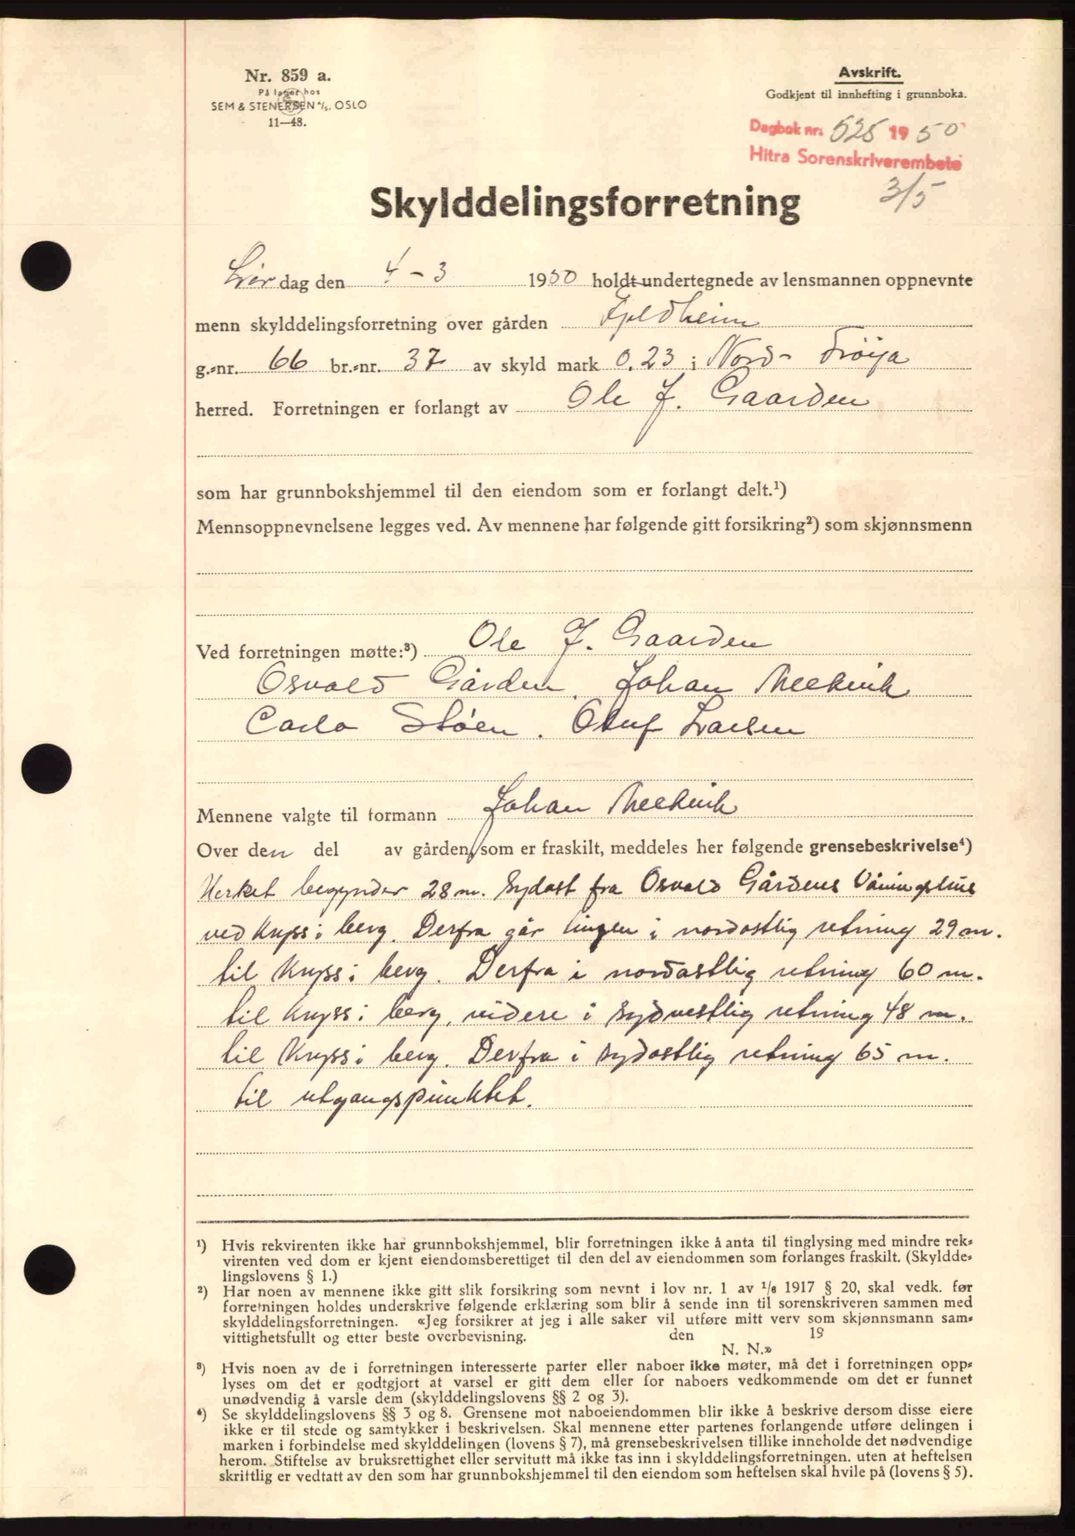 Nr. 859 a.
På lager hos
SEM & STENERSEN A/S, OSLO
11—48.
Avskrift.
Godkjent til innhefting i grunnboka.
Dagbok nr. 525 1950
Hitra Sorenskriverembete
3/5
Skylddelingsforretning
Lørdag den 4-3 1950 holdt undertegnede av lensmannen oppnevnte
menn skylddelingsforretning over gården Fjeldheim
g.-nr. 66 br.-nr. 37 av skyld mark 0.23 i Nord-Frøya
herred. Forretningen er forlangt av Ole J. Gaarden
som har grunnbokshjemmel til den eiendom som er forlangt delt.¹)
Mennsoppnevnelsene legges ved. Av mennene har følgende gitt forsikring²) som skjønnsmenn
Ved forretningen møtte:³) Ole J. Gaarden
Osvald Gården, Johan
Carlo Støen. Oluf Larsen
Mennene valgte til formann Johan
Over den del av gården, som er fraskilt, meddeles her følgende grensebeskrivelse⁴)
Merket begynder 28 m. sydost fra Osvald Gårdens Våningshus
ved kryss i berg. Derfra går linjen i nordostlig retning 29 m.
til kryss i berg. Derfra i nordostlig retning 60 m.
til kryss i berg, videre i sydvestlig retning 48 m.
til kryss i berg. Derfra i sydostlig retning 65 m.
til utgangspunktet.
¹) Hvis rekvirenten ikke har grunnbokshjemmel, blir forretningen ikke å anta til tinglysing med mindre rek-
virenten ved dom er kjent eiendomsberettiget til den del av eiendommen som forlanges fraskilt. (Skyldde-
lingslovens § 1.)
²) Har noen av mennene ikke gitt slik forsikring som nevnt i lov nr. 1 av 1/6 1917 § 20, skal vedk. før
forretningen holdes underskrive følgende erklæring som blir å sende inn til sorenskriveren sammen med
skylddelingsforretningen. «Jeg forsikrer at jeg i alle saker vil utføre mitt verv som skjønnsmann sam-
vittighetsfullt og etter beste overbevisning. den 19
N. N.»
³) Hvis noen av de i forretningen interesserte parter eller naboer ikke møter, må det i forretningen opp-
lyses om det er godtgjort at varsel er gitt dem eller for naboers vedkommende om det er funnet
unødvendig å varsle dem (skylddelingslovens §§ 2 og 3).
⁴) Se skylddelingslovens §§ 3 og 8. Grensene mot naboeiendommen blir ikke å beskrive dersom disse eiere
ikke er til stede og samtykker i beskrivelsen. Skal mennene etter partenes forlangende utføre delingen i
marken i forbindelse med skylddelingen (lovens § 7), må grensebeskrivelsen tillike inneholde det nødvendige
herom. Stiftelse av bruksrettighet eller servitutt må ikke tas inn i skylddelingsforretningen, uten at heftelsen
skriftlig er vedtatt av den som har grunnbokshjemmel til den eiendom som heftelsen skal hvile på (lovens § 5).